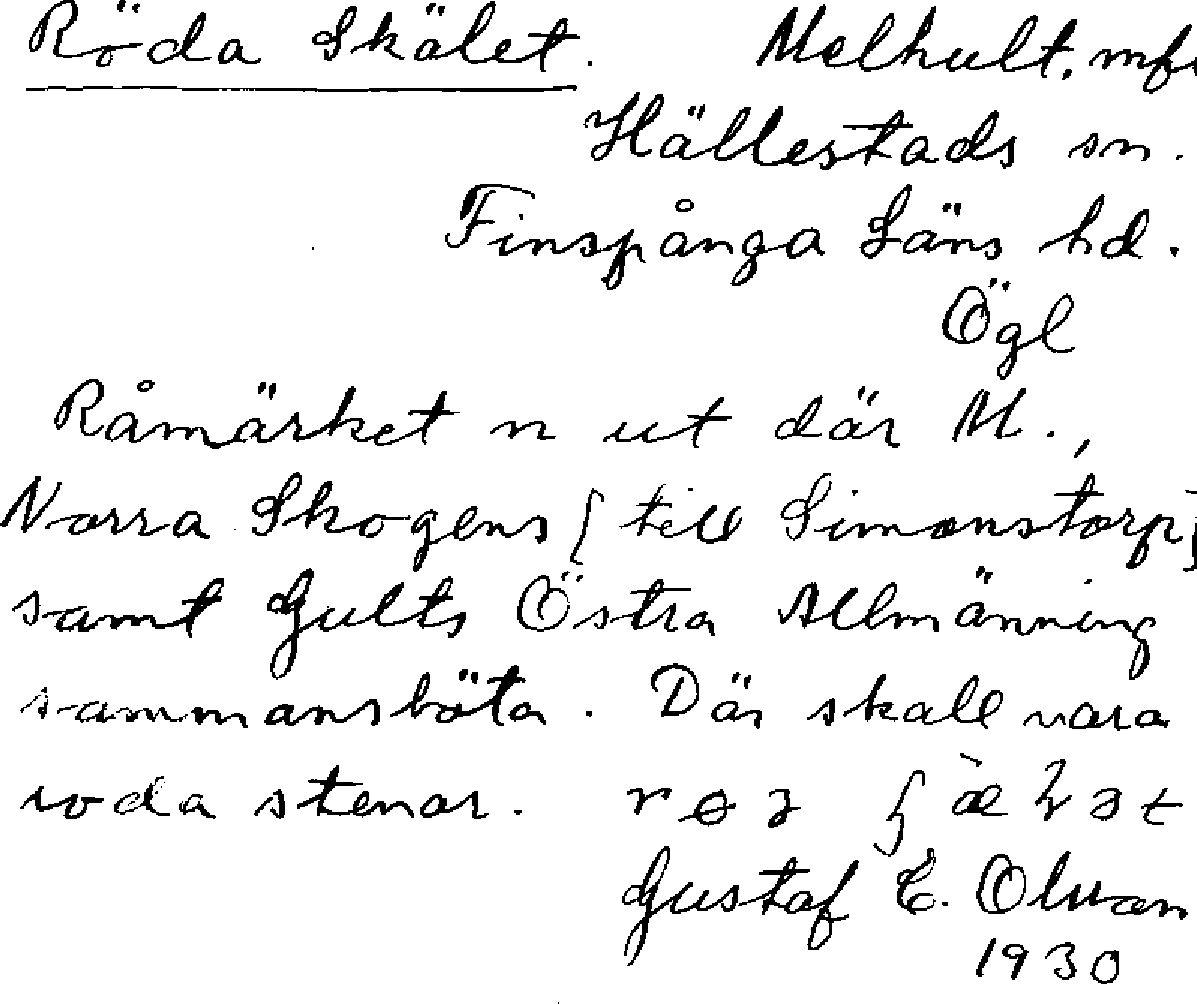 Röda Skälet. Melhult, mfl
Hällestads sn.
Finspånga Läns hd.
Ögl
Råmärket n ut där M.,
Norra Skogens (till Simonstorp)
samt Gults Östra Allmänning
sammanstöta. Där skall vara
röda stenar.
Gustaf E. Olsson
1930